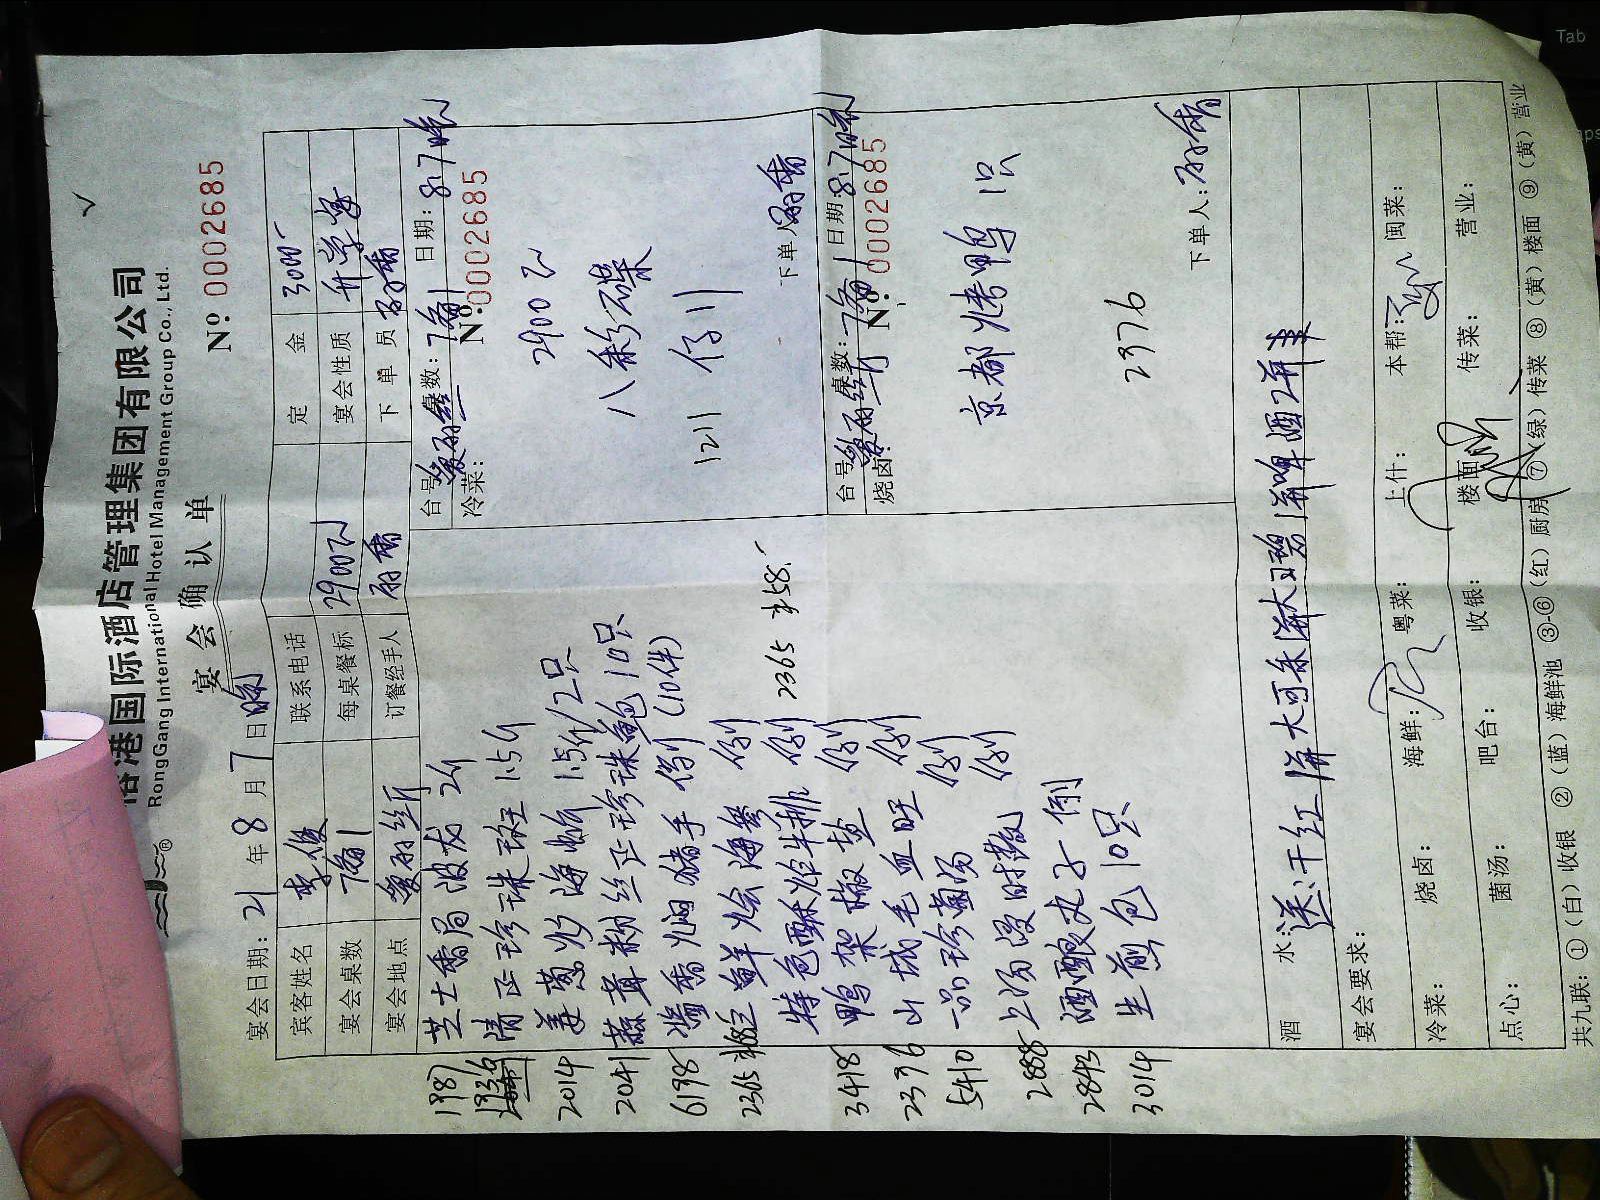 港国际酒店管理集团有限公司
RongGang International Hotel Management Group Co., Ltd.
宴会确认单
Nº: 0002685
宴会日期: 21年8月7日晚
宾客姓名 李俊 联系电话 定金 3000-
宴会桌数 每桌餐标 2900元 宴会性质 升学宴
宴会地点 爱丽丝厅 订餐经手人 下单员
1987 芝士香焗波龙 2斤
1936 清正珍珠斑 1.5斤
2014 姜葱炒海蟹 1.5斤/2只
2041 蒜茸粉丝正珍珠鲍10只
6198 酱香焗猪手 例 (10件)
2365 三鲜烩海参 例
特色酥炸牛排 例 2365 58.-
3418 鸭架椒盐 例
2376 山城毛血旺 例
5410 一品珍菌汤 例
2888 上汤浸时蔬 例
2843 酒酿丸子 例
3014 生煎包 10只
台号 桌数: 日期: 8.7晚
冷菜: Nº: 0002685
2900元
八彩碟
1211 例
下单人
台号 桌数: 日期: 8.7晚
烧卤: Nº: 0002685
京都烤鸭 1只
2376
下单人:
酒水 送:干红1瓶 大可乐1瓶 大雪碧1瓶 啤酒2瓶
宴会要求:
冷菜: 烧卤: 海鲜: 粤菜: 上什: 本帮: 闽菜:
点心: 菌汤: 吧台: 收银: 楼面 传菜: 营业:
共九联: ①(白)收银 ②(蓝)海鲜池 ③-⑥(红)厨房 ⑦(绿)传菜 ⑧(黄)楼面 ⑨(黄)营业
Tab